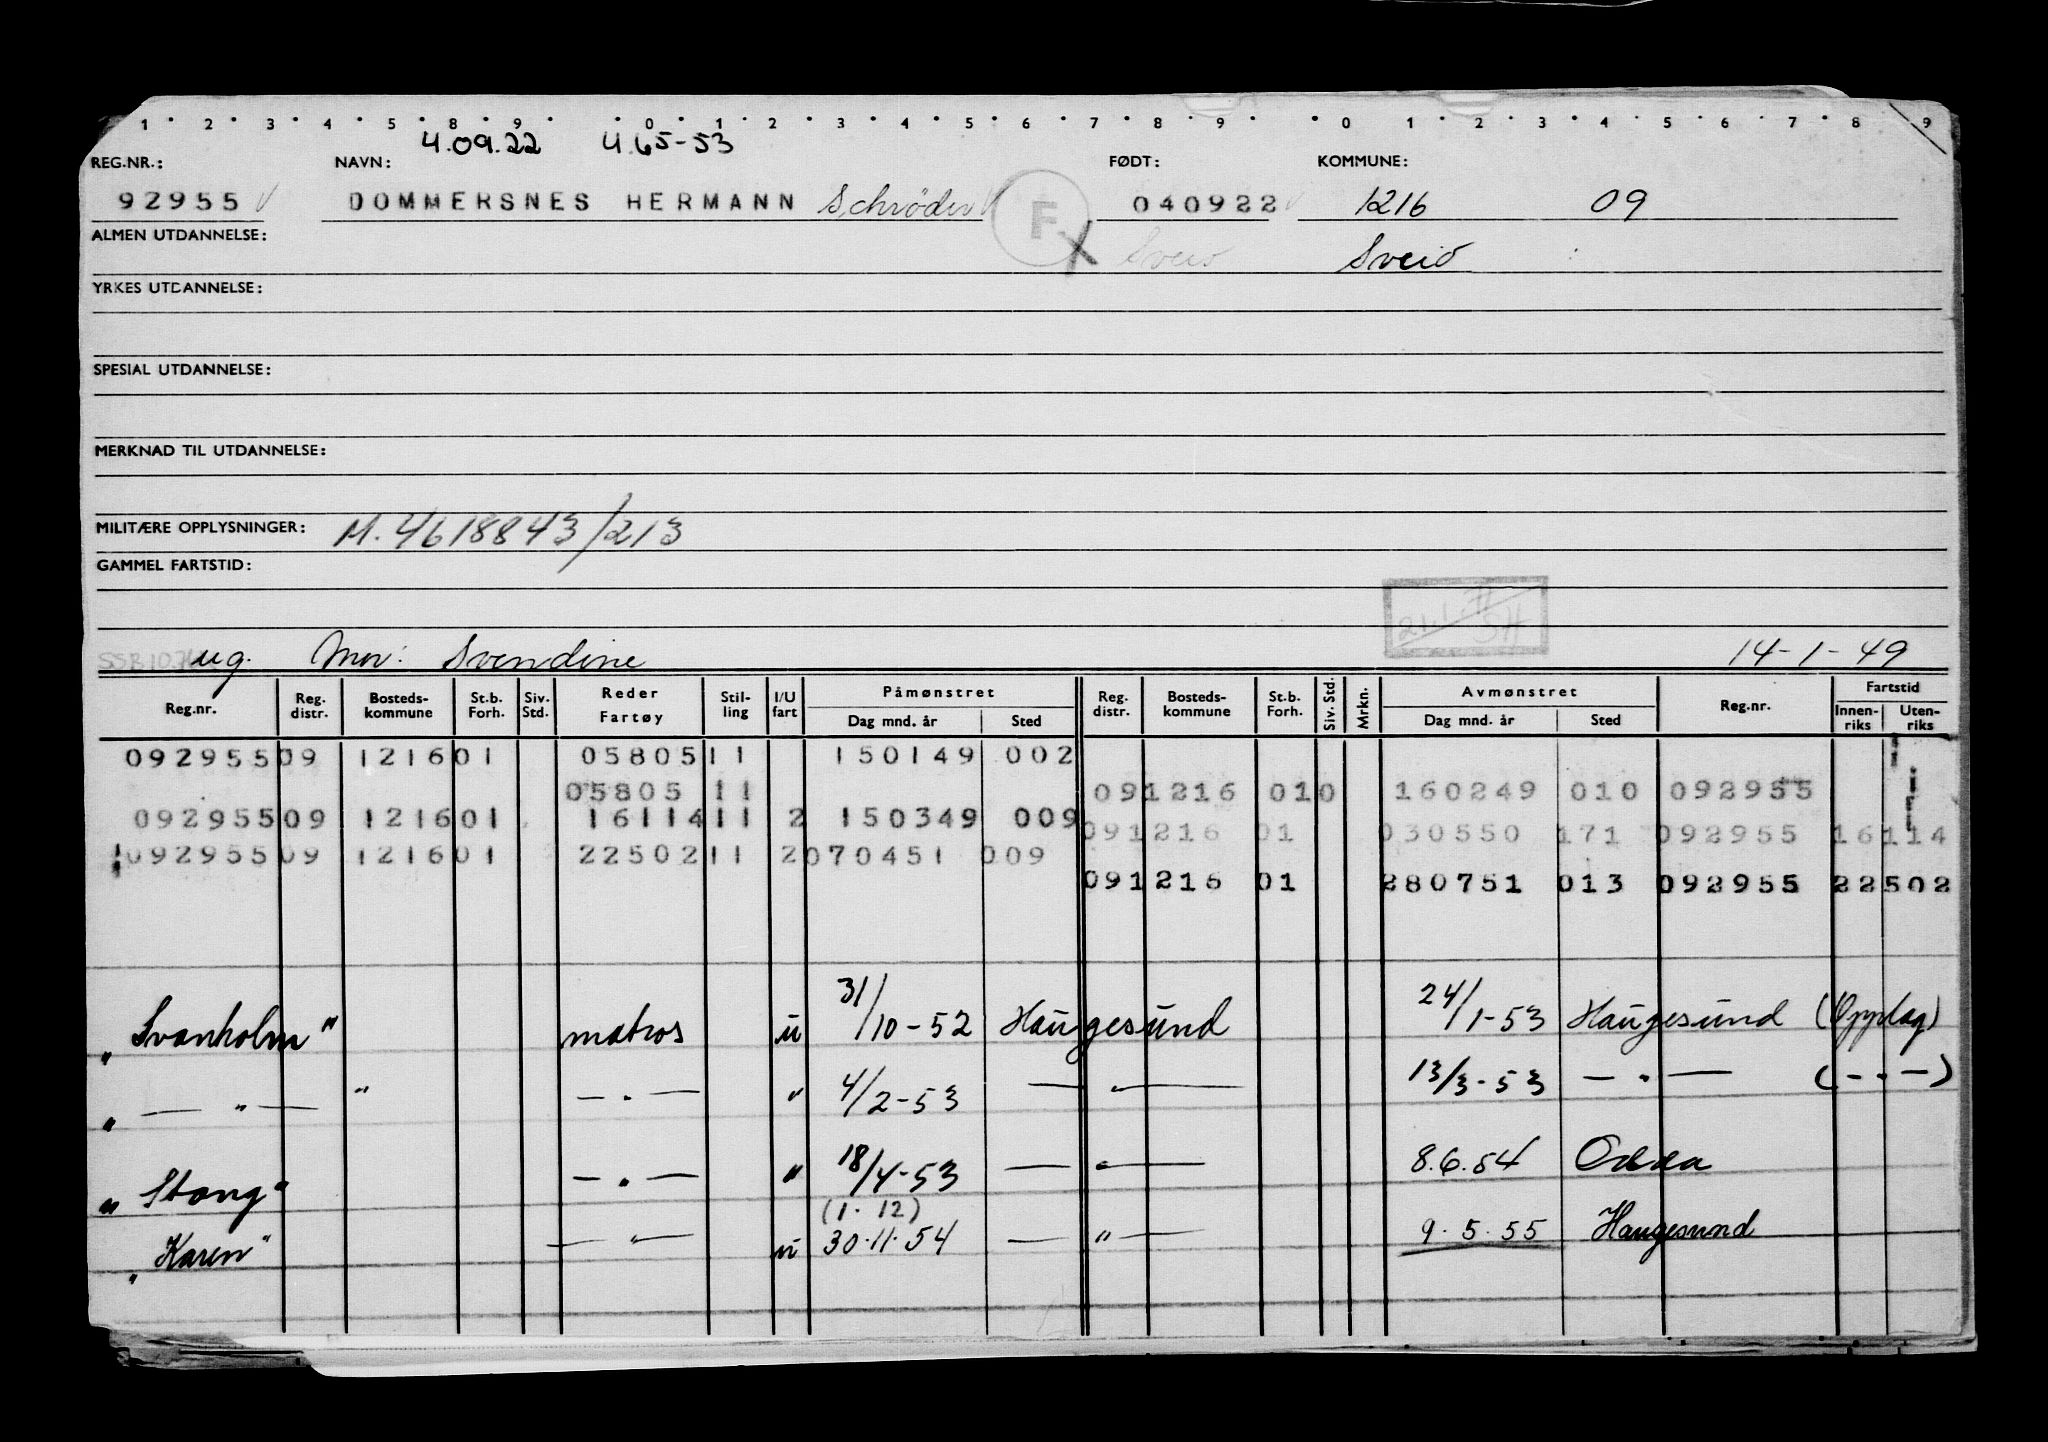 1 · 2 · 3 · 4 · 5 · 8 · 9 · · 0 · 1 · 2 · 3 · 4 · 5 · 6 · 7 · 8 · 9 · · 0 · 1 · 2 · 3 · 4 · 5 · 6 · 7 · 8 · 9
4.09.22 4.65-53
REG.NR.: NAVN: FØDT: KOMMUNE:
92955 DOMMERSNES HERMANN Schrøder F 040922 1216 09
ALMEN UTDANNELSE: Sveio Sveio
YRKES UTDANNELSE:
SPESIAL UTDANNELSE:
MERKNAD TIL UTDANNELSE:
MILITÆRE OPPLYSNINGER: M. 4618843/213
GAMMEL FARTSTID:
ug. Mor: Svendine 14-1-49
Reg.nr. Reg. distr. Bosteds-kommune St.b. Forh. Siv. Std. Reder Fartøy Stil-ling I/U fart Påmønstret Dag mnd. år Sted Reg. distr. Bosteds-kommune St.b. Forh. Siv. Std. Mrkn. Avmønstret Dag mnd. år Sted Reg.nr. Fartstid Innen-riks Uten-riks
092955 09 1216 01 05805 11 150149 002
05805 11 09 1216 01 0 160249 010 092955
092955 09 1216 01 16114 11 2 150349 009
09 1216 01 030550 171 092955 16114
092955 09 1216 01 22502 11 2 070451 009
09 1216 01 280751 013 092955 22502
"Svanholm" matros u 31/10-52 Haugesund 24/1-53 Haugesund (Opplag)
" — " — " — " — " 4/2-53 — " — 13/3-53 — " — (— " —)
"Stang" — " — " 18/4-53 — " — 8.6.54 Odda
(1. 12)
"Karen" — " — u 30.11.54 — " — 9.5.55 Haugesund